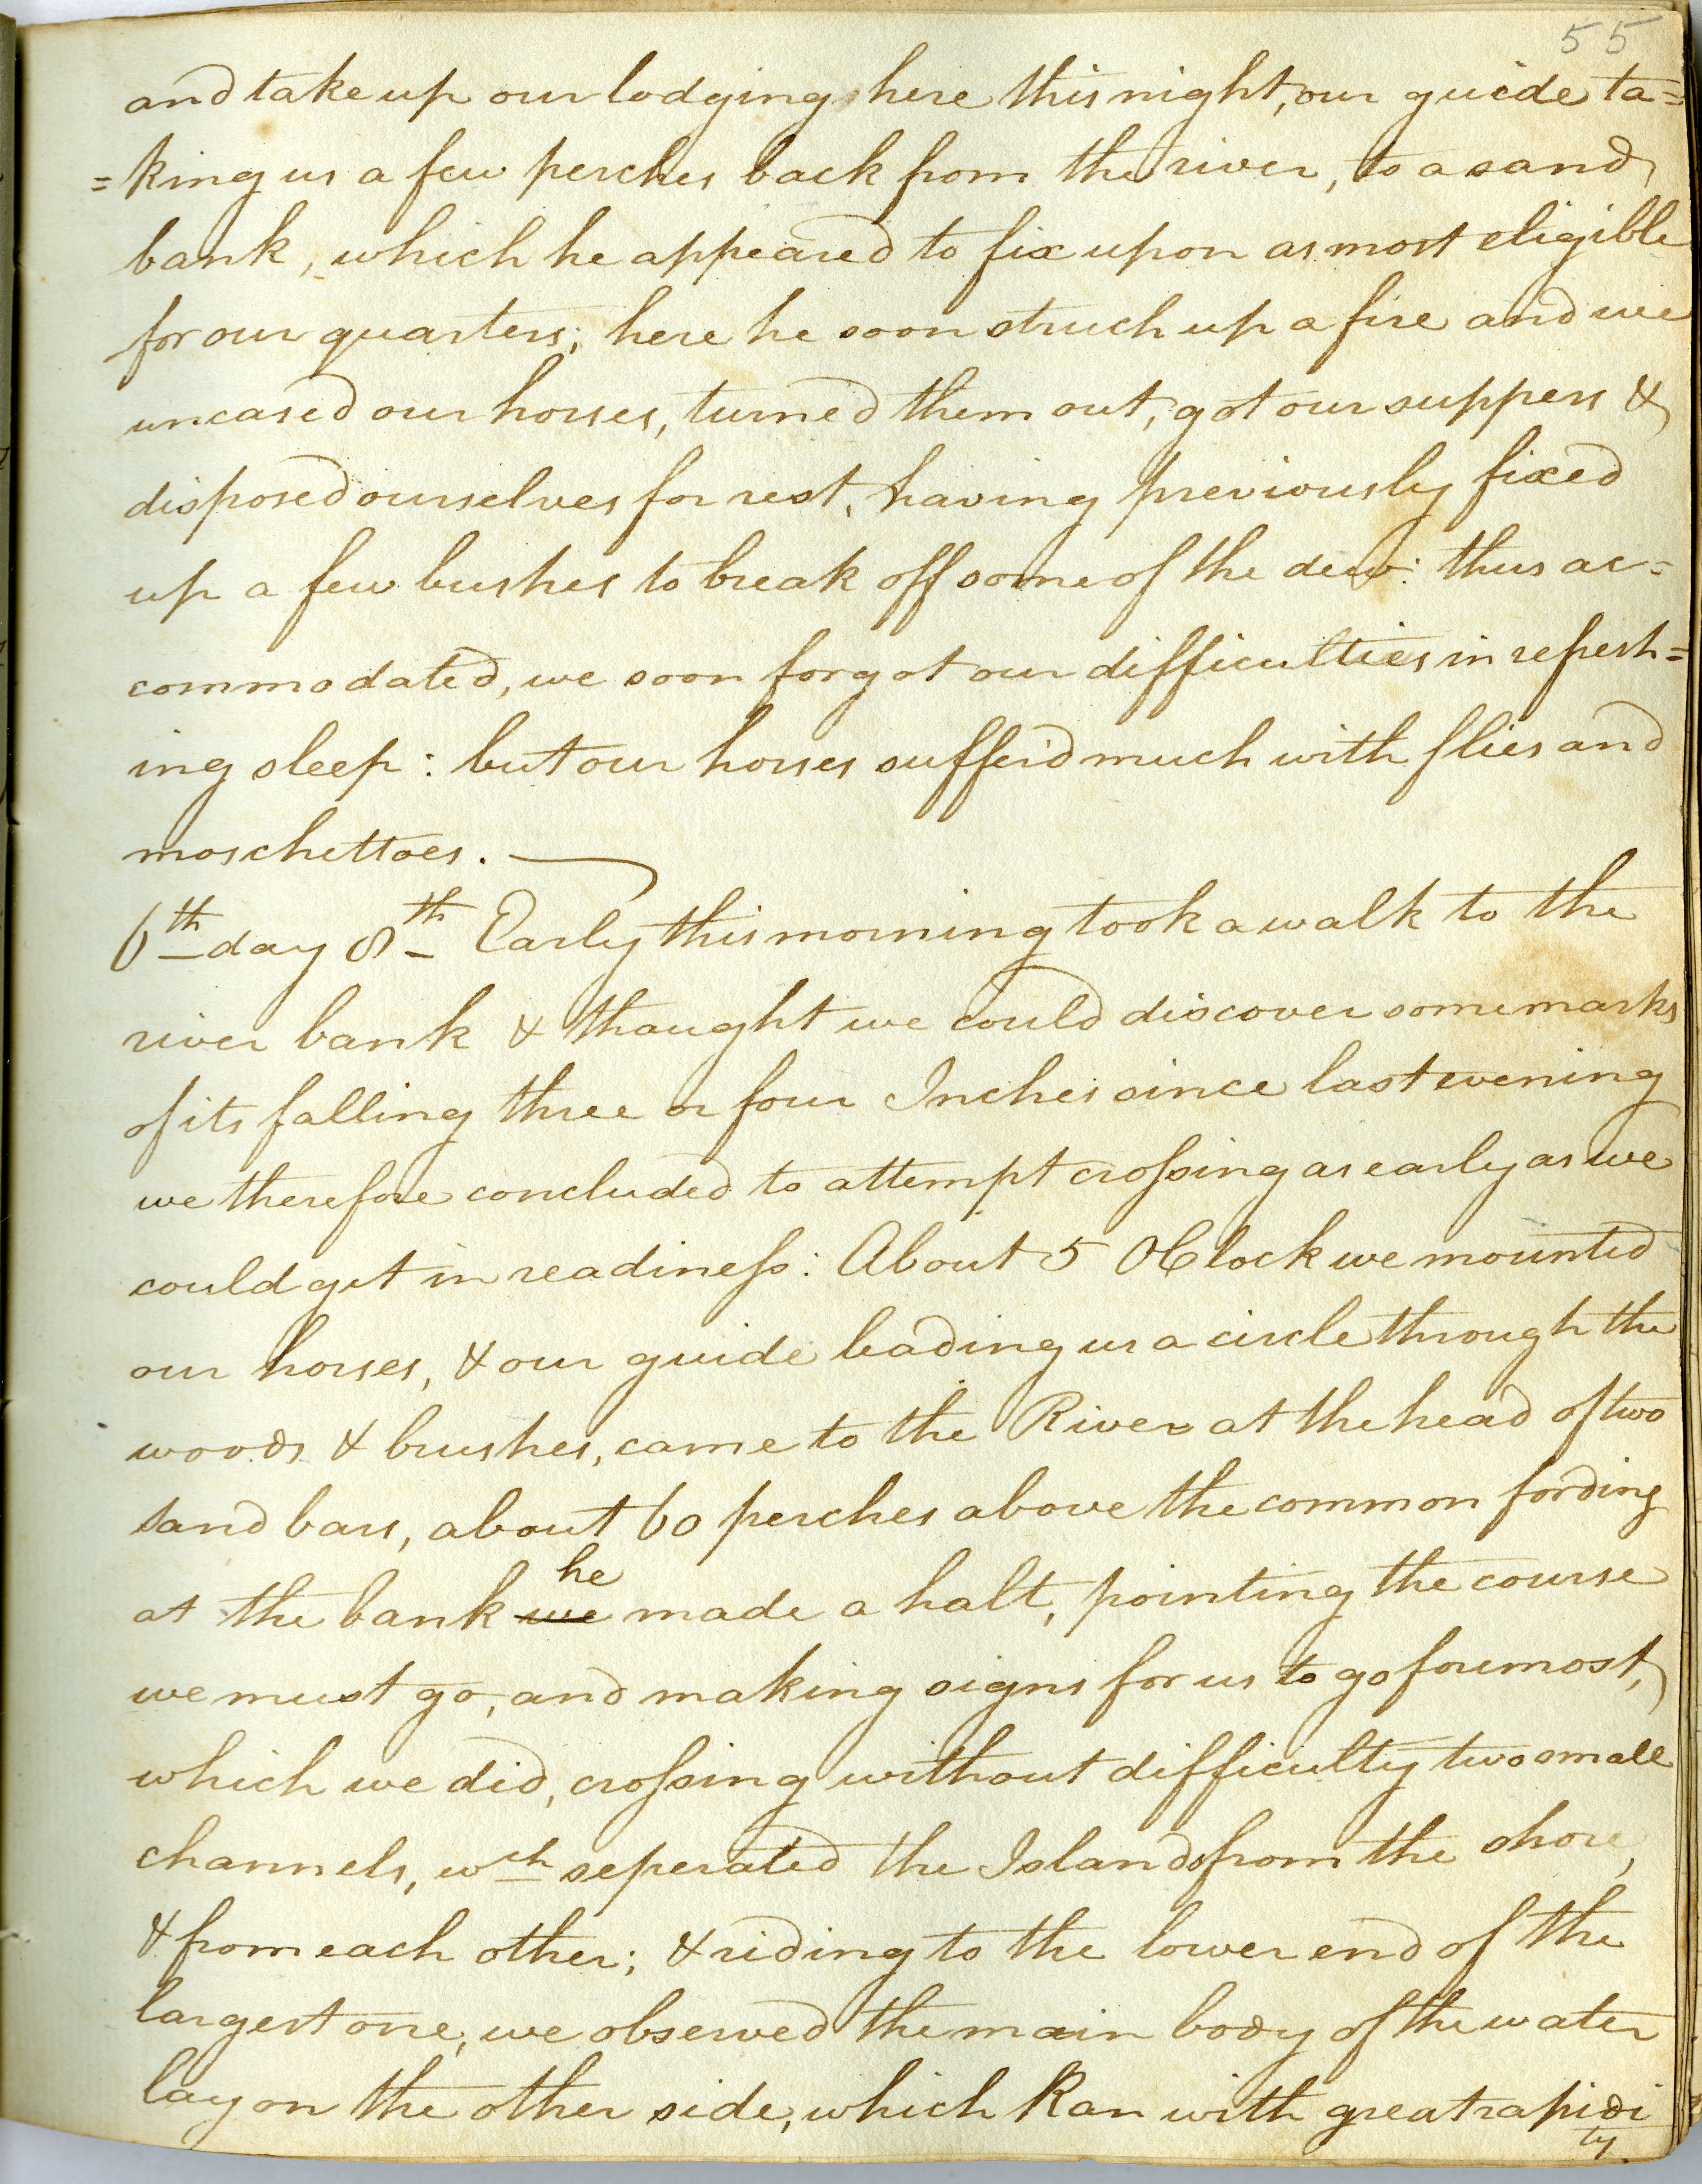 55
and take up our lodging here this night, our guide ta=
=king us a few perches back from the river, to a sand
bank, which he appeared to fix upon as most eligible
for our quarters; here he soon struck up a fire and we
uncased our horses, turned them out, got our suppers &
disposed ourselves for rest, having previously fixed
up a few bushes to break off some of the dew: thus ac=
commodated, we soon forgot our difficulties in refresh=
ing sleep: but our horses suffer'd much with flies and
moschettoes.
6th day 8th Early this morning took a walk to the
river bank & thought we could discover some marks
of its falling three or four Inches since last evening
we therefore concluded to attempt crossing as early as we
could get in readiness: About 5 OClock we mounted
our horses, & our guide leading us a circle through the
woods & brushes, came to the River at the head of two
sand bars, about 60 perches above the common fording
at the bank we he made a halt, pointing the course
we must go, and making signs for us to go foremost,
which we did, crossing without difficulty two small
channels, wch seperated the Islands from the shore,
& from each other; & riding to the lower end of the
largest one, we observed the main body of the water
lay on the other side, which Ran with great rapidi
ty